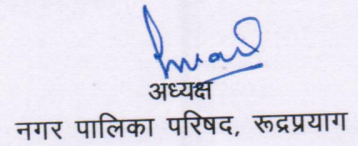 अध्यक्ष
नगर पालिका परिषद, रूद्रप्रयाग